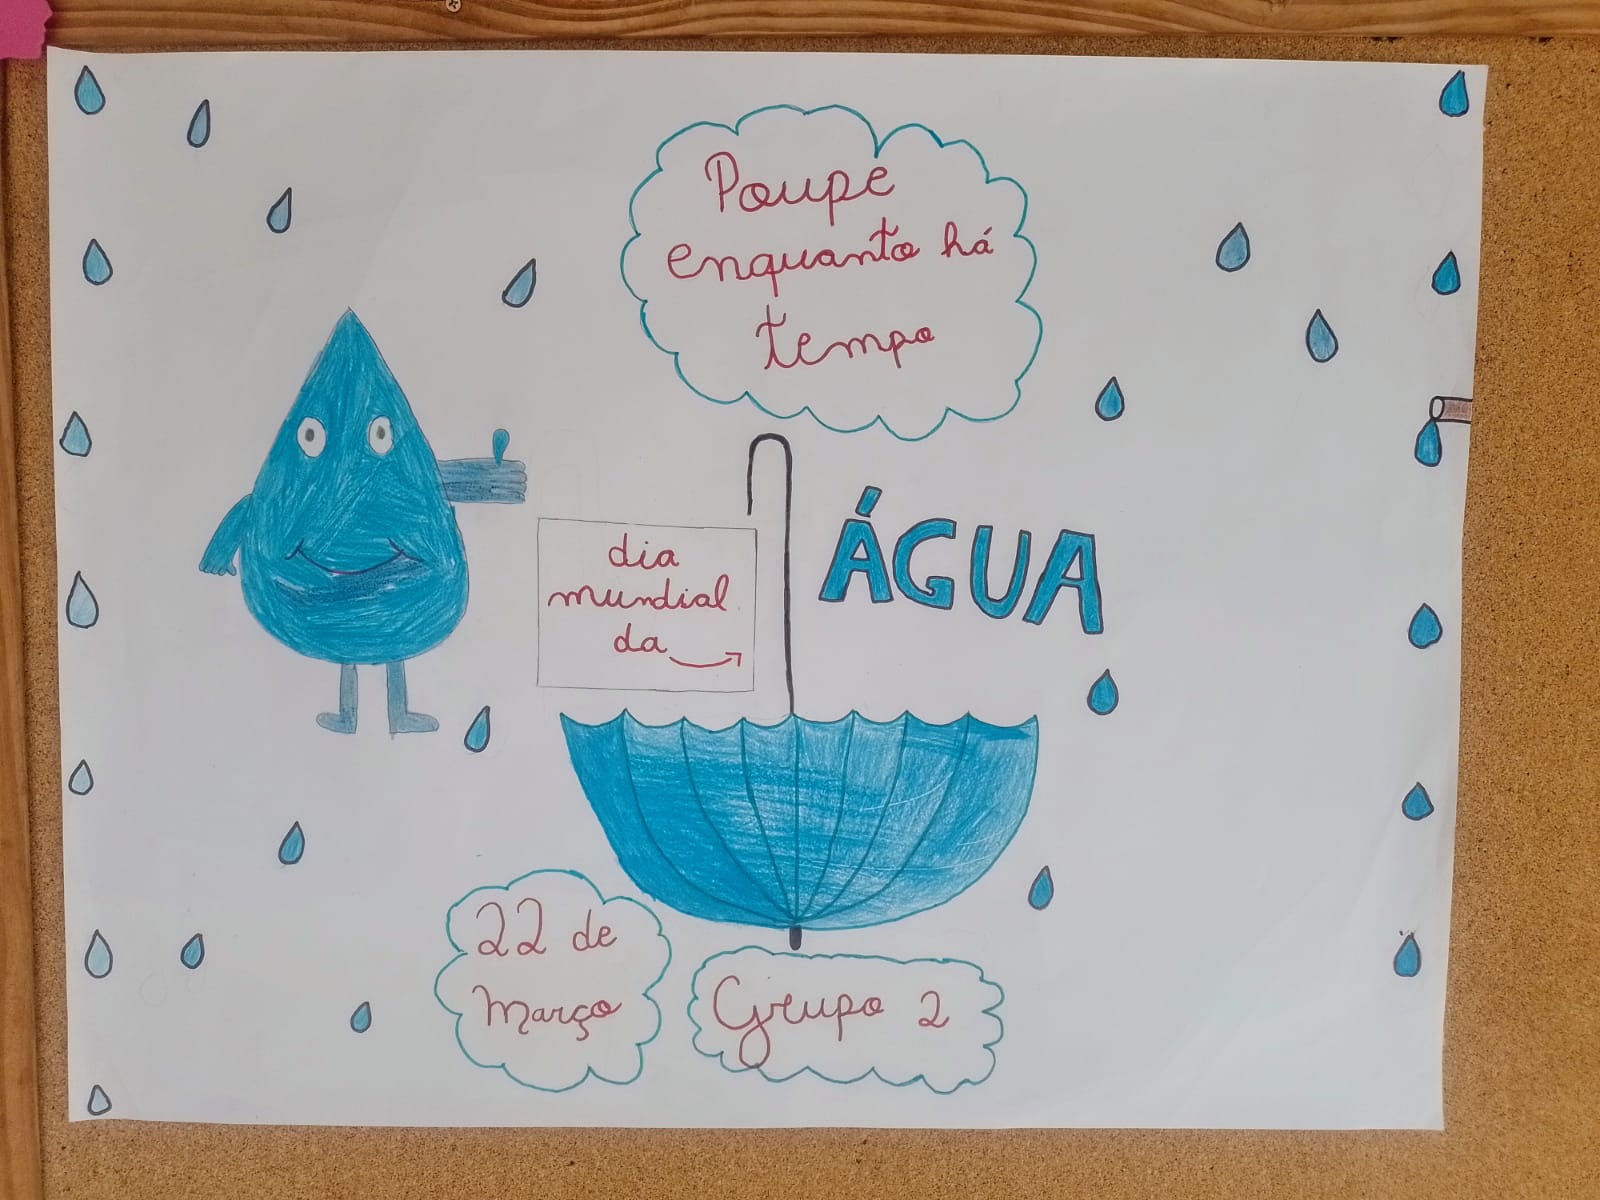 Poupe
enquanto há
tempo
dia
mundial
da
ÁGUA
22 de
Março
Grupo 2